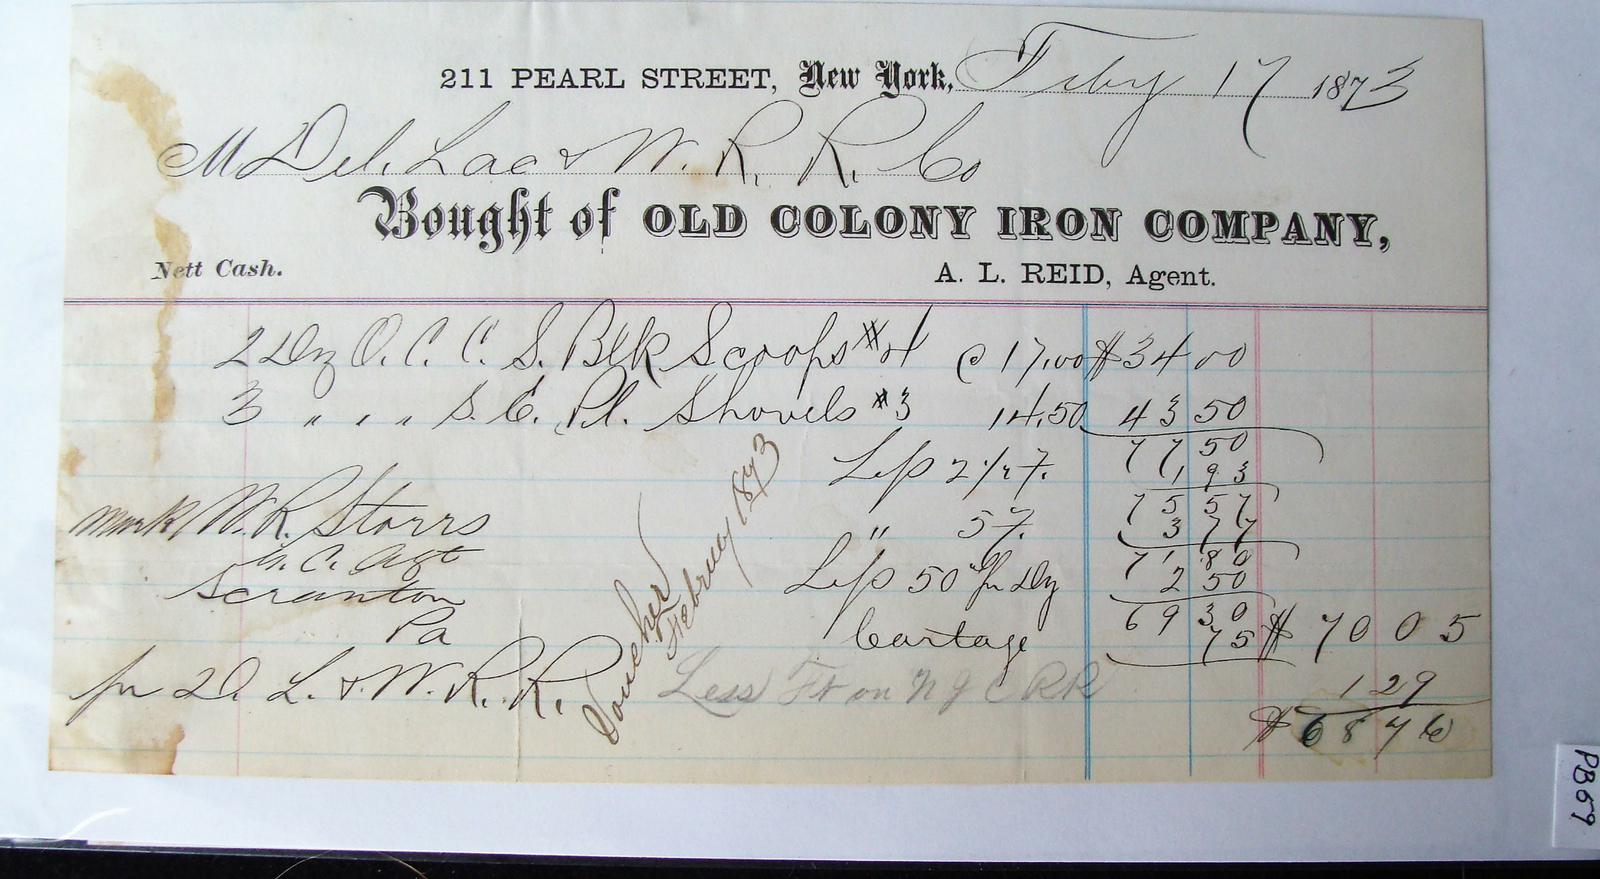 211 PEARL STREET, New York, Feby 17 1873
M Del. Lac & W. R. R. Co
Bought of OLD COLONY IRON COMPANY,
Nett Cash.
A. L. REID, Agent.
2 Dz O. C. C. S. Blk Scoops #4 @ 17.00 $34 00
3 " " " S. C. Pl. Shovels #3 14.50 43 50
77 50
Less 2 1/2 %. 1 93
75 57
" 5 %. 3 77
71 80
Less 50 " pr Dz 2 50
69 30
Cartage 75 $ 70 05
mark W. R. Storrs
G. C. Agt
Scranton
Pa
for D. L. & W. R. R.
Voucher
February 1873
Less Ft on N J C RR 1 29
$ 68 76
PB59